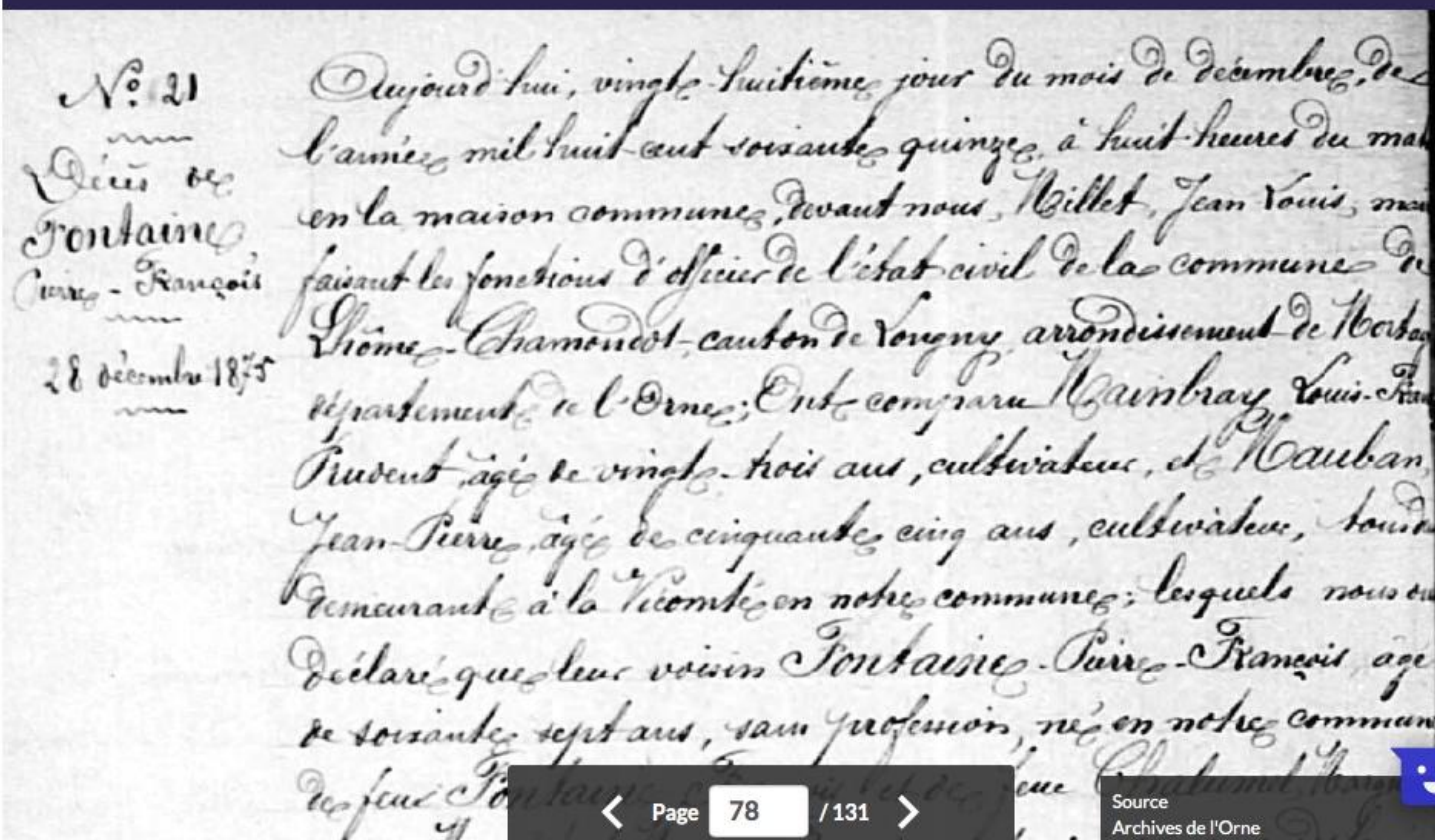 N° 21
Décès de
Fontaine
Pierre - François
28 décembre 1875
Aujourd'hui, vingt-huitième jour du mois de décembre, de
l'année mil huit cent soixante quinze, à huit heures du mat
en la maison commune, devant nous, Millet, Jean Louis, mai
faisant les fonctions d'officier de l'état civil de la commune de
Lhôme-Chamondot, canton de Longny, arrondissement de Mortag
département de l'Orne; Ont comparu Mainbray Louis-Fran
Prudent, âgé de vingt-trois ans, cultivateur, et Mauban,
Jean-Pierre, âgé de cinquante cinq ans, cultivateur, tous d
demeurant à la Vicomté en notre commune; lesquels nous on
déclaré que leur voisin Fontaine-Pierre-François, âgé
de soixante sept ans, sans profession, né en notre commun
de feu Fontaine et de feue Chalumel
Page 78 / 131
Source
Archives de l'Orne